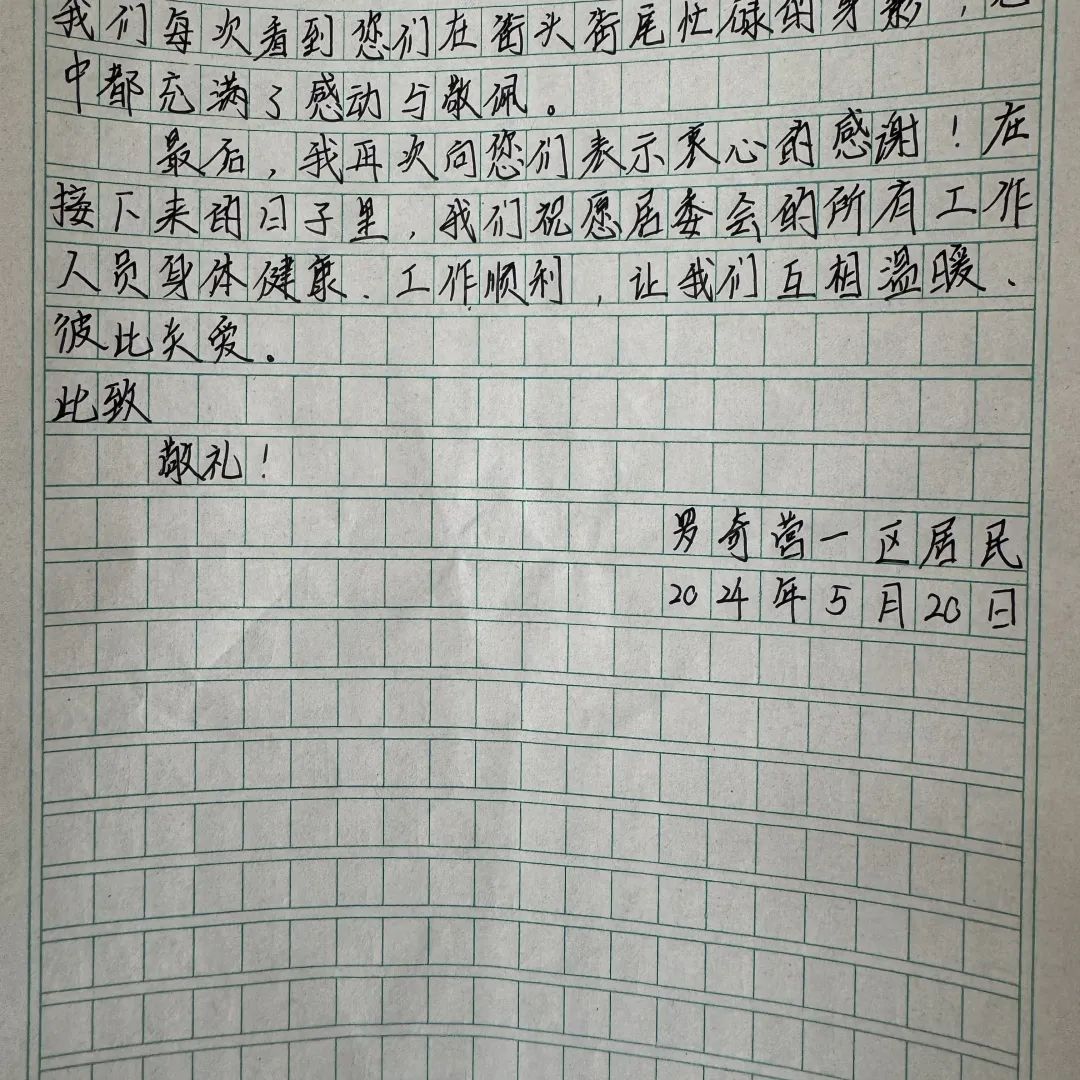 我们每次看到您们在街头街尾忙碌的身影，心
中都充满了感动与敬佩。
最后，我再次向您们表示衷心的感谢！在
接下来的日子里，我们祝愿居委会的所有工作
人员身体健康、工作顺利，让我们互相温暖、
彼此关爱。
此致
敬礼！
罗奇营一区居民
2024年5月20日